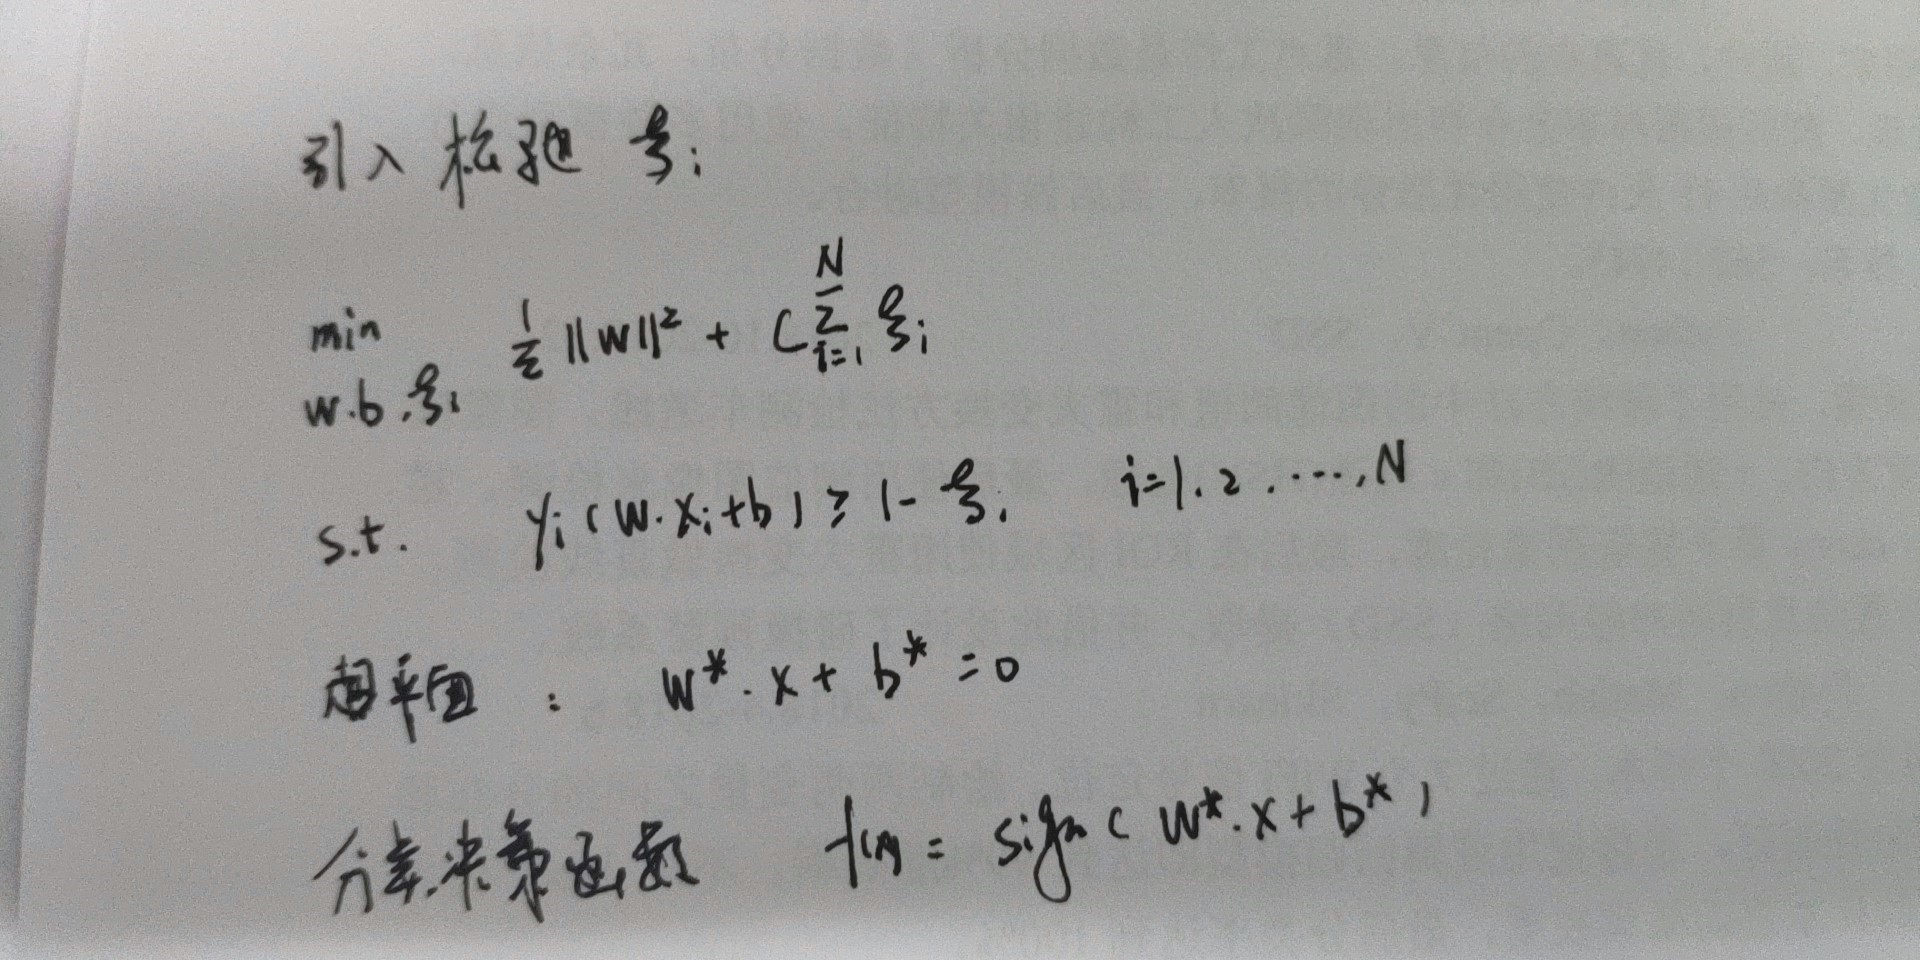 引入松弛 ξi
min 1/2 ||w||² + C N∑i=1 ξi
w.b.ξi
s.t. yi(w·xi+b) ≥ 1-ξi i=1.2.…,N
超平面 : w*·x+b*=0
分类决策函数 f(x)=sign(w*·x+b*)